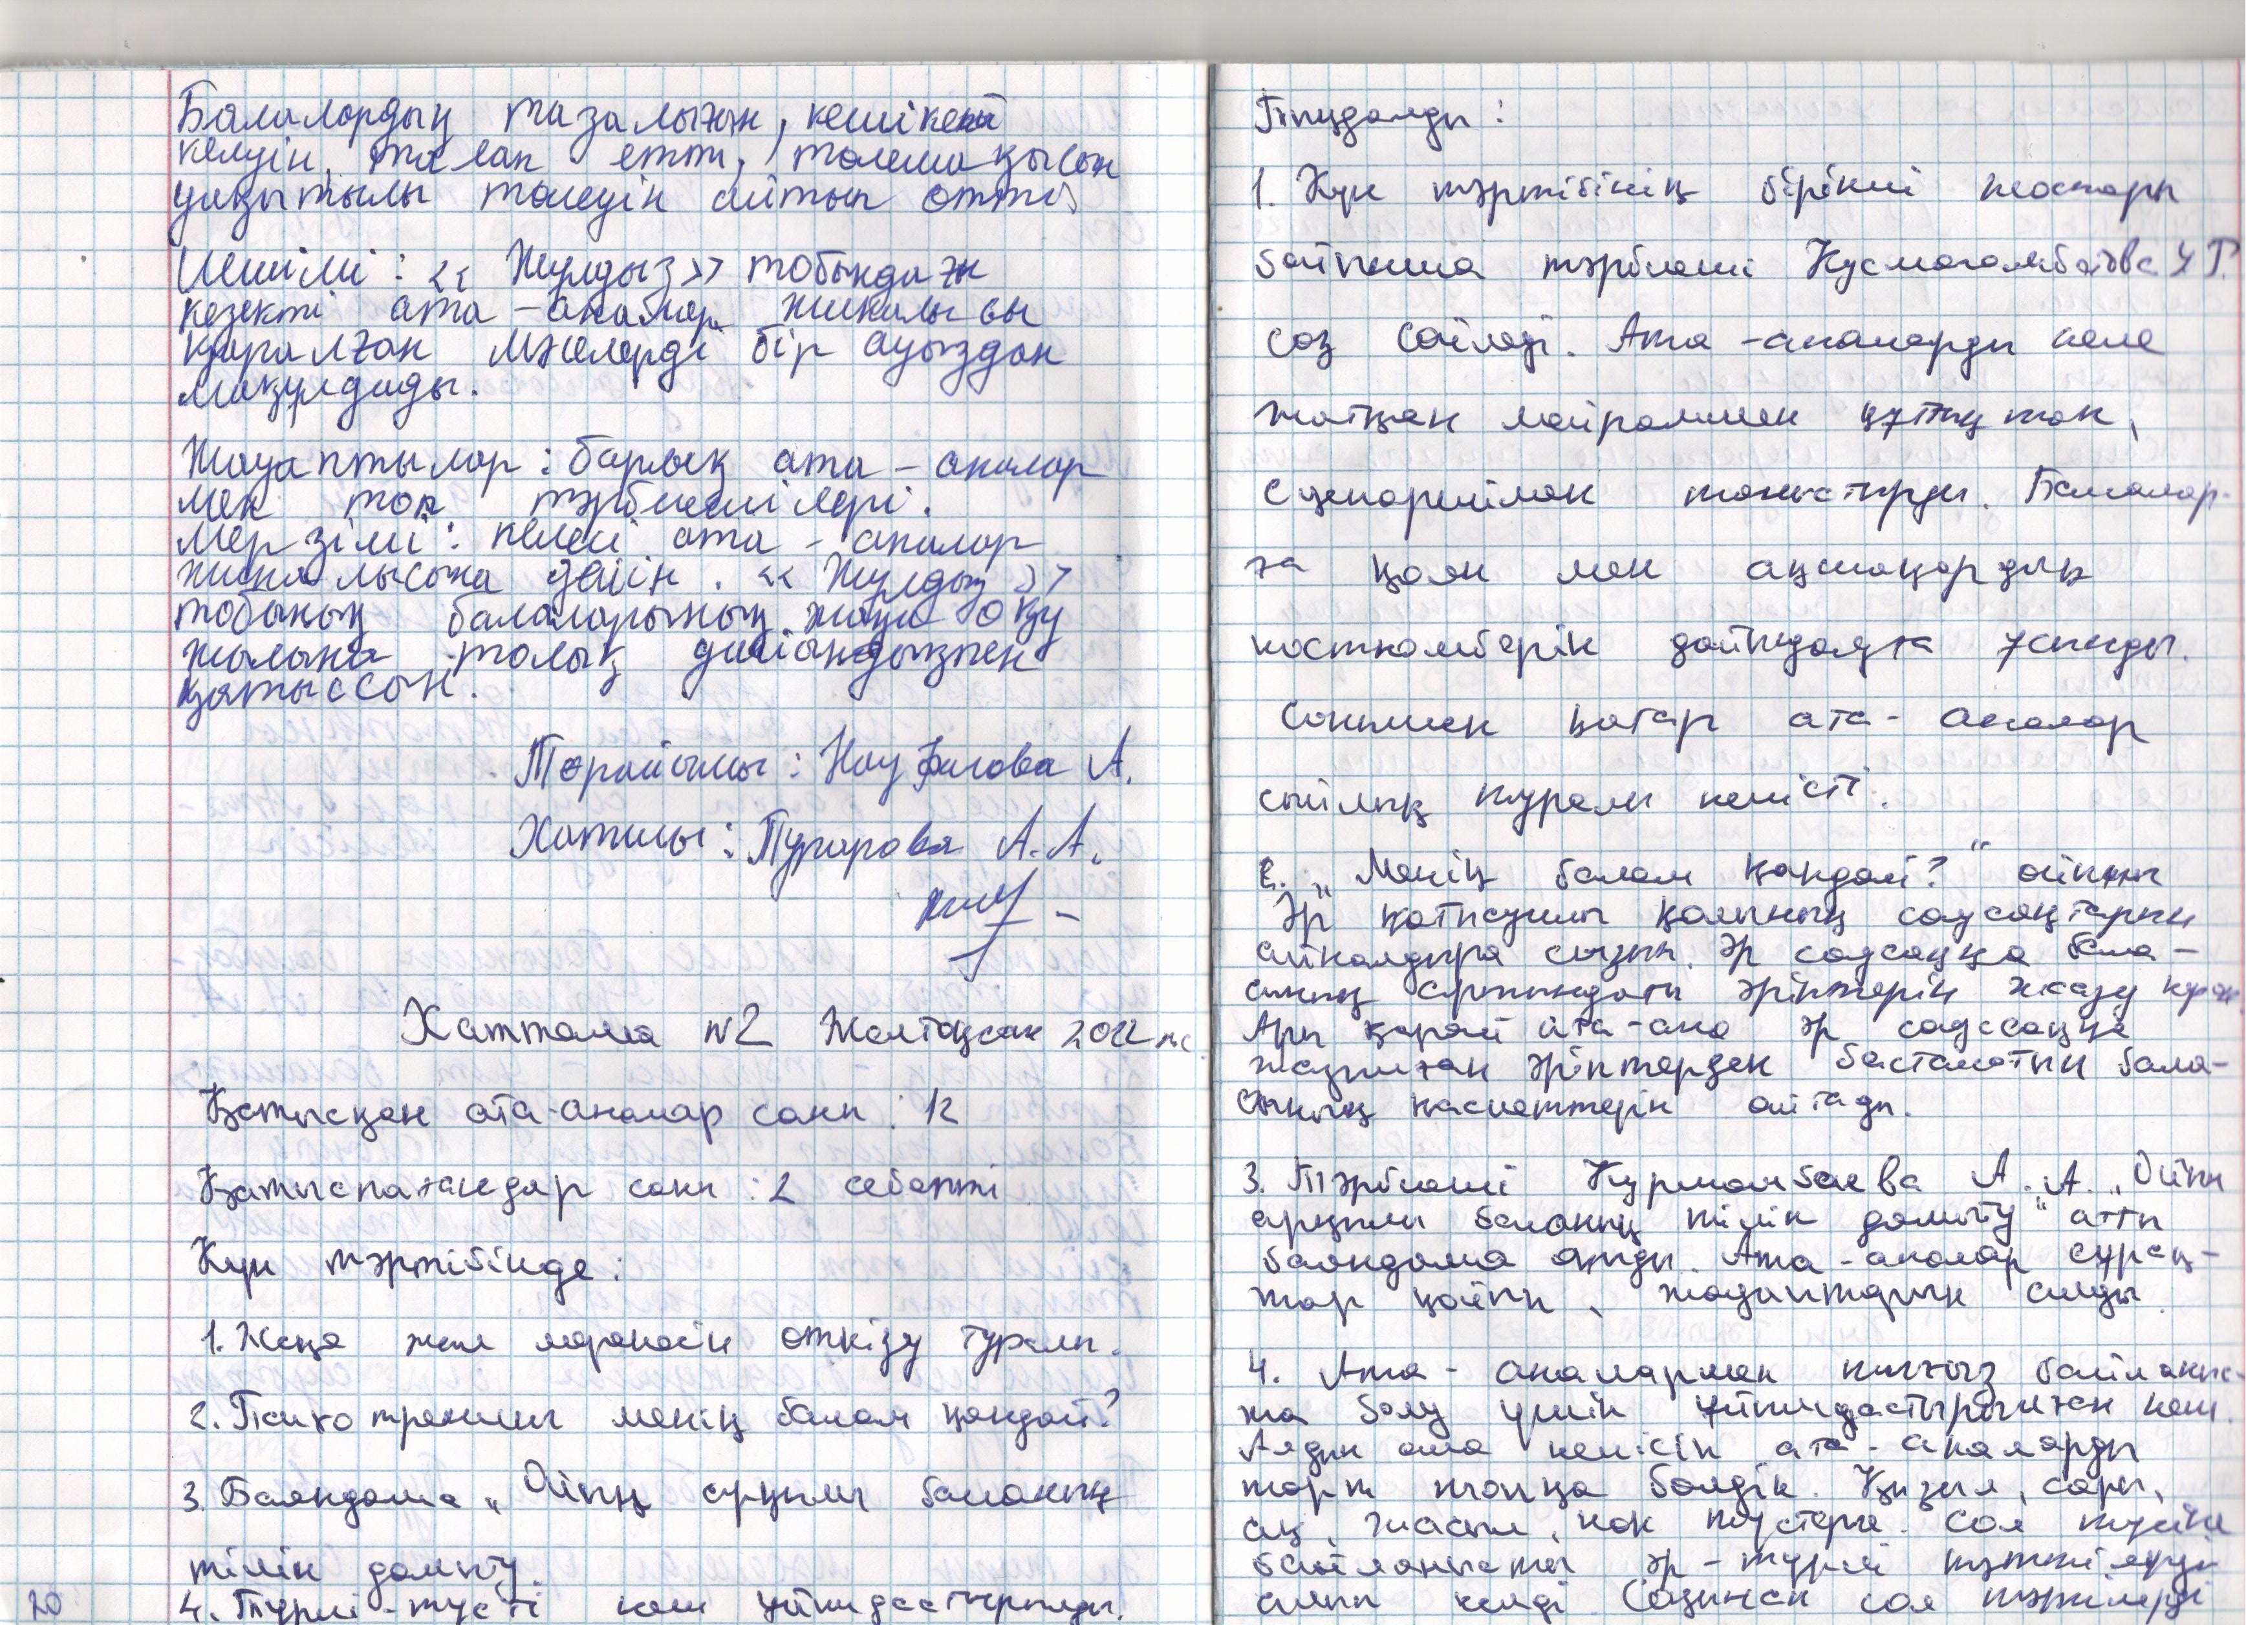 Балалардың тазалығын, кешікпей
келуін, талап етті, төлемақысын
уақытылы төлеуін айтып өтті.
Шешімі: « Жұлдыз» тобындағы
кезекті ата-аналар жиналысы
қаралған мәселерді бір ауыздан
мақұлдады.
Жауаптылар: барлық ата-аналар
мен топ тәрбиешілері.
Мерзімі: келесі ата-аналар
жиналысына дейін. « Жұлдыз »
тобының балаларының жаңа оқу
жылына толық дайындықпен
қатыссын.
Төрайымы: Науфанова А.
Хатшы: Тугирова А.А.
Хаттама №2 Желтоқсан 2022 ж.
Қатысқан ата-аналар саны: 12
Қатыспағандар саны: 2 себепті
Күн тәртібінде:
1. Жаңа жыл мерекесін өткізу туралы.
2. Психотренинг менің балам қандай?
3. Баяндама „ Ойын арқылы баланың
тілін дамыту.
4. Түрлі-түсті кеш ұйымдастырылды.
20
Тыңдалды:
1. Күн тәртібінің бірінші жоспары
бойынша тәрбиеші Кусмагамбетова У Г.
сөз сөйледі. Ата-аналарды келе
жатқан мейраммен құттықтап,
сценариймен таныстырды. Балалар-
ға қоян мен ақшақардың
костюмдерін дайындауға ұсынды.
Сонымен қатар ата-аналар
сыйлық туралы келісті.
2. „ Менің балам қандай?“ ойыны
Әр қатысушы қолының саусақтарын
айналдыра сызып. Әр саусаққа бала-
сының атындағы әріптерін жазу керек.
Ары қарай ата-ана әр саусаққа
жазылған әріптерден басталатын бала-
сының қасиеттерін айтады.
3. Тәрбиеші Курманбаева А.А. „Ойын
арқылы баланың тілін дамыту“ атты
баяндама оқыды. Ата-аналар сұрақ-
тар қойып, жауаптарын алды.
4. Ата-аналармен тығыз байланыс-
та болу үшін ұйымдастырылған кеш.
Алдын ала келісіп ата-аналарды
төрт топқа бөлдік. Қызыл, сары,
ақ, жасыл, көк түстерге. Сол түсіне
байланысты әр-түрлі киімдерді
алып келді. Сонымен сол